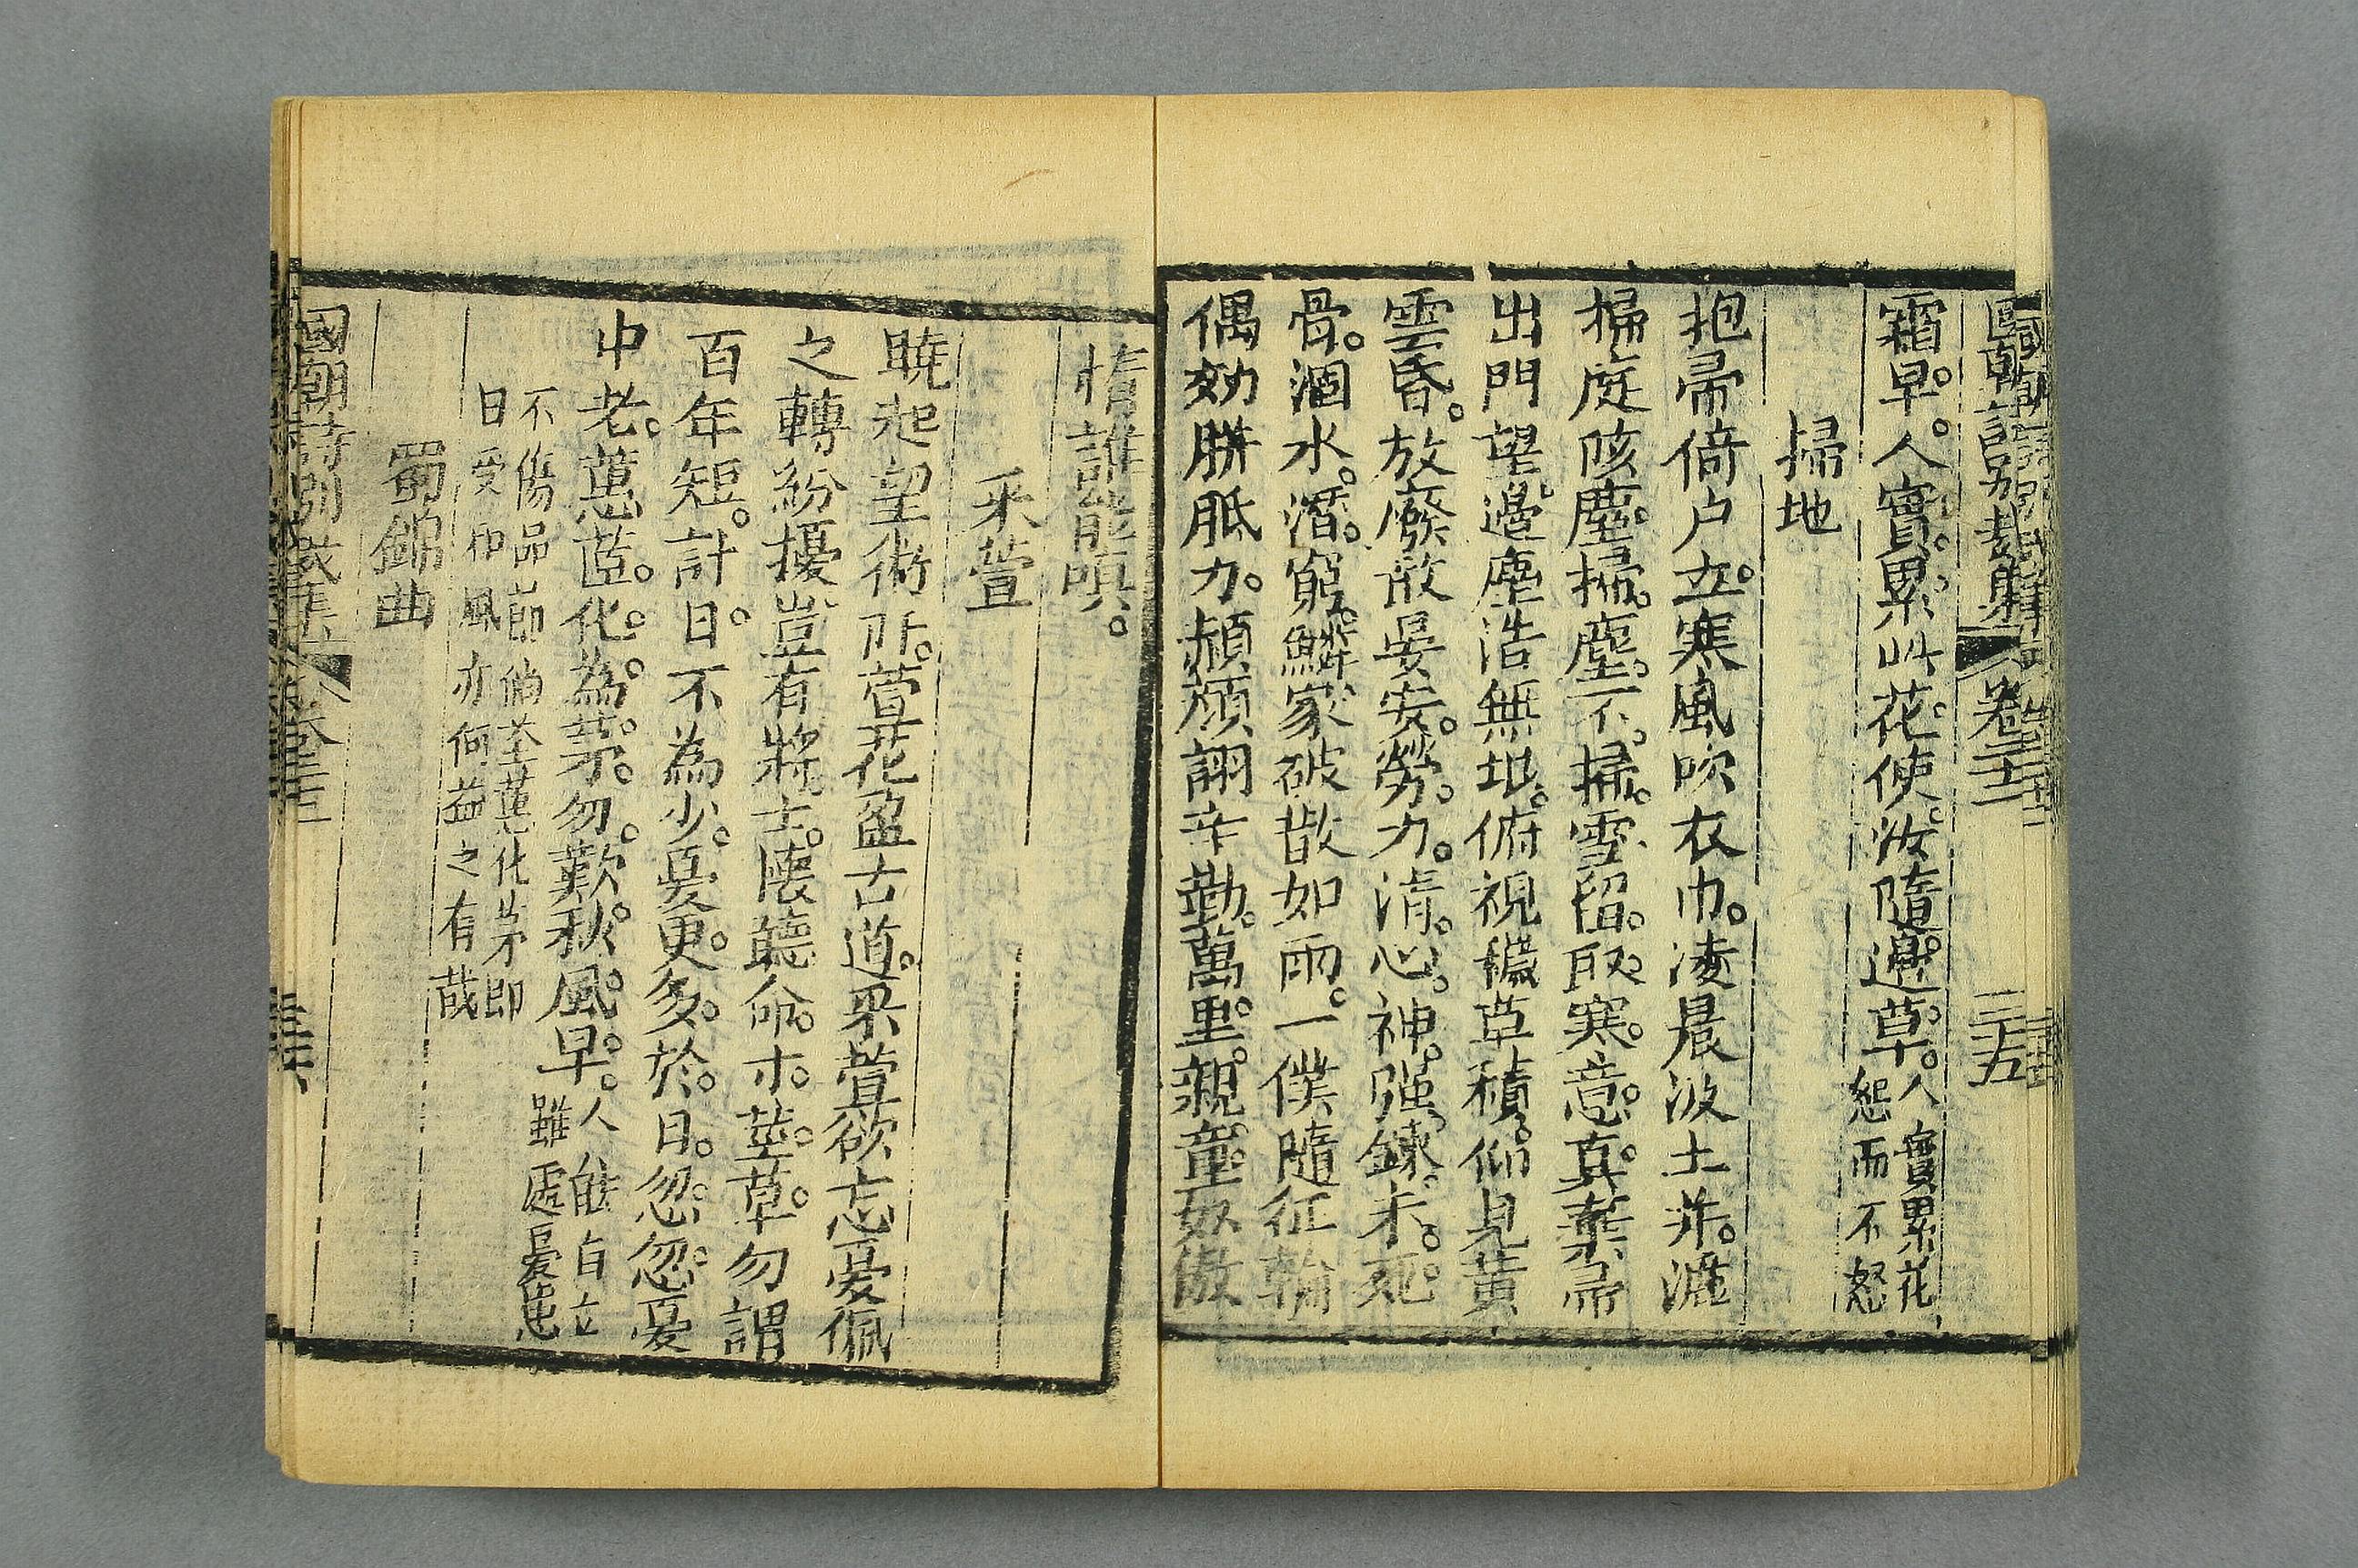 國朝詩別裁集 卷三十二 三十五
霜早。人實累此花。使汝隨邊草。人實累花
怨而不怒
掃地
抱帚倚户立。寒風吹衣巾。凌晨汲土井。灑
掃庭陔塵。掃塵不掃雪。留取寒意真。葉帚
出門望。邊塵浩無垠。俯視穢草積。仰見黃
雲昏。放廢敢晏安。勞力清心神。强鍊未死
骨。涸水潛窮鱗。家破散如雨。一僕隨征輪
偶効胼胝力。頳顏詡辛勤。萬里親童奴。傲
惰誰能嗔。
采萱
曉起望衡阡。萱花盈古道。采萱欲忘憂。佩
之轉紛擾。豈有將士懷。聽命寸莖草。勿謂
百年短。計日不為少。憂更多於日。忽忽憂
中老。蕙茞化為茅。勿歎秋風早。人能自立
雖處憂患
不傷品節倘荃蕙化茅即
日受和風亦何益之有哉
蜀錦曲
國朝詩別裁集